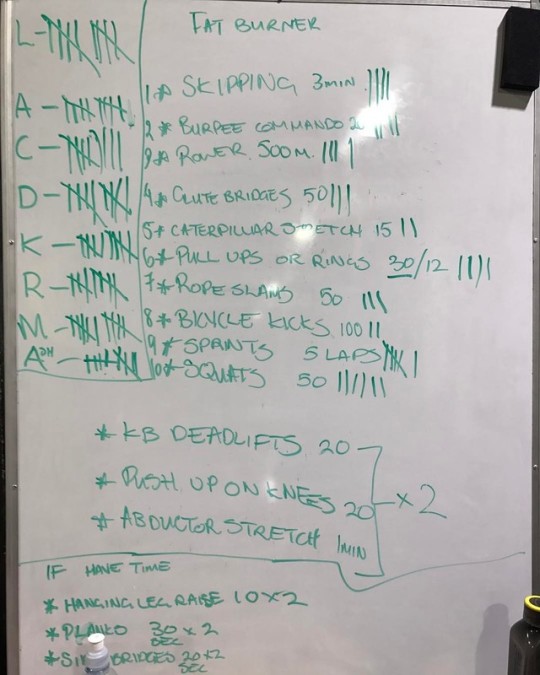 FAT BURNER
L -
A -
C -
D -
K -
R -
M -
ADH -
1* SKIPPING 3min
2* BURPEE COMMANDO 20
3* ROWER 500M.
4* GLUTE BRIDGES 50
5* CATERPILLAR STRETCH 15
6* PULL UPS OR RINGS 30/12
7* ROPE SLAMS 50
8* BICYCLE KICKS 100
9* SPRINTS 5 LAPS
10* SQUATS 50
* KB DEADLIFTS 20
* PUSH UP ON KNEES 20
x 2
* ABDUCTOR STRETCH 1MIN
IF HAVE TIME
* HANGING LEG RAISE 10 x 2
* 30 SEC x 2
* BRIDGES 20 SEC x 2